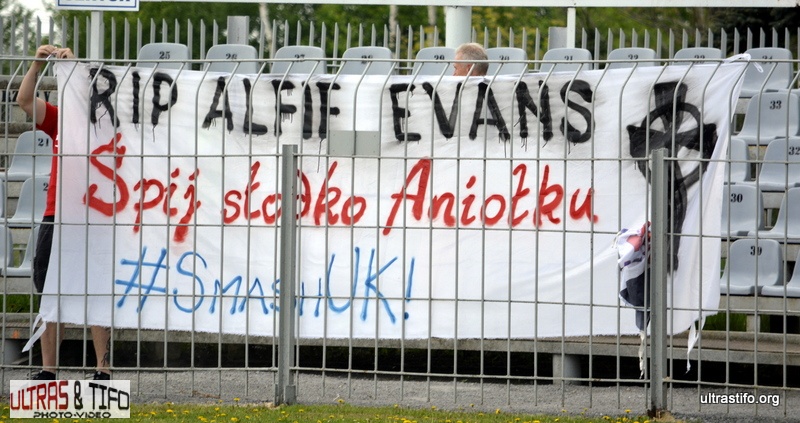 RIP ALFIE EVANS
Śpij słodko Aniołku
#SmashUK!
25 26 27 28 29 30 31 32 33 34
33
31
32
30
31
29
ULTRAS & TIFO
PHOTO-VIDEO
ultrastifo.org